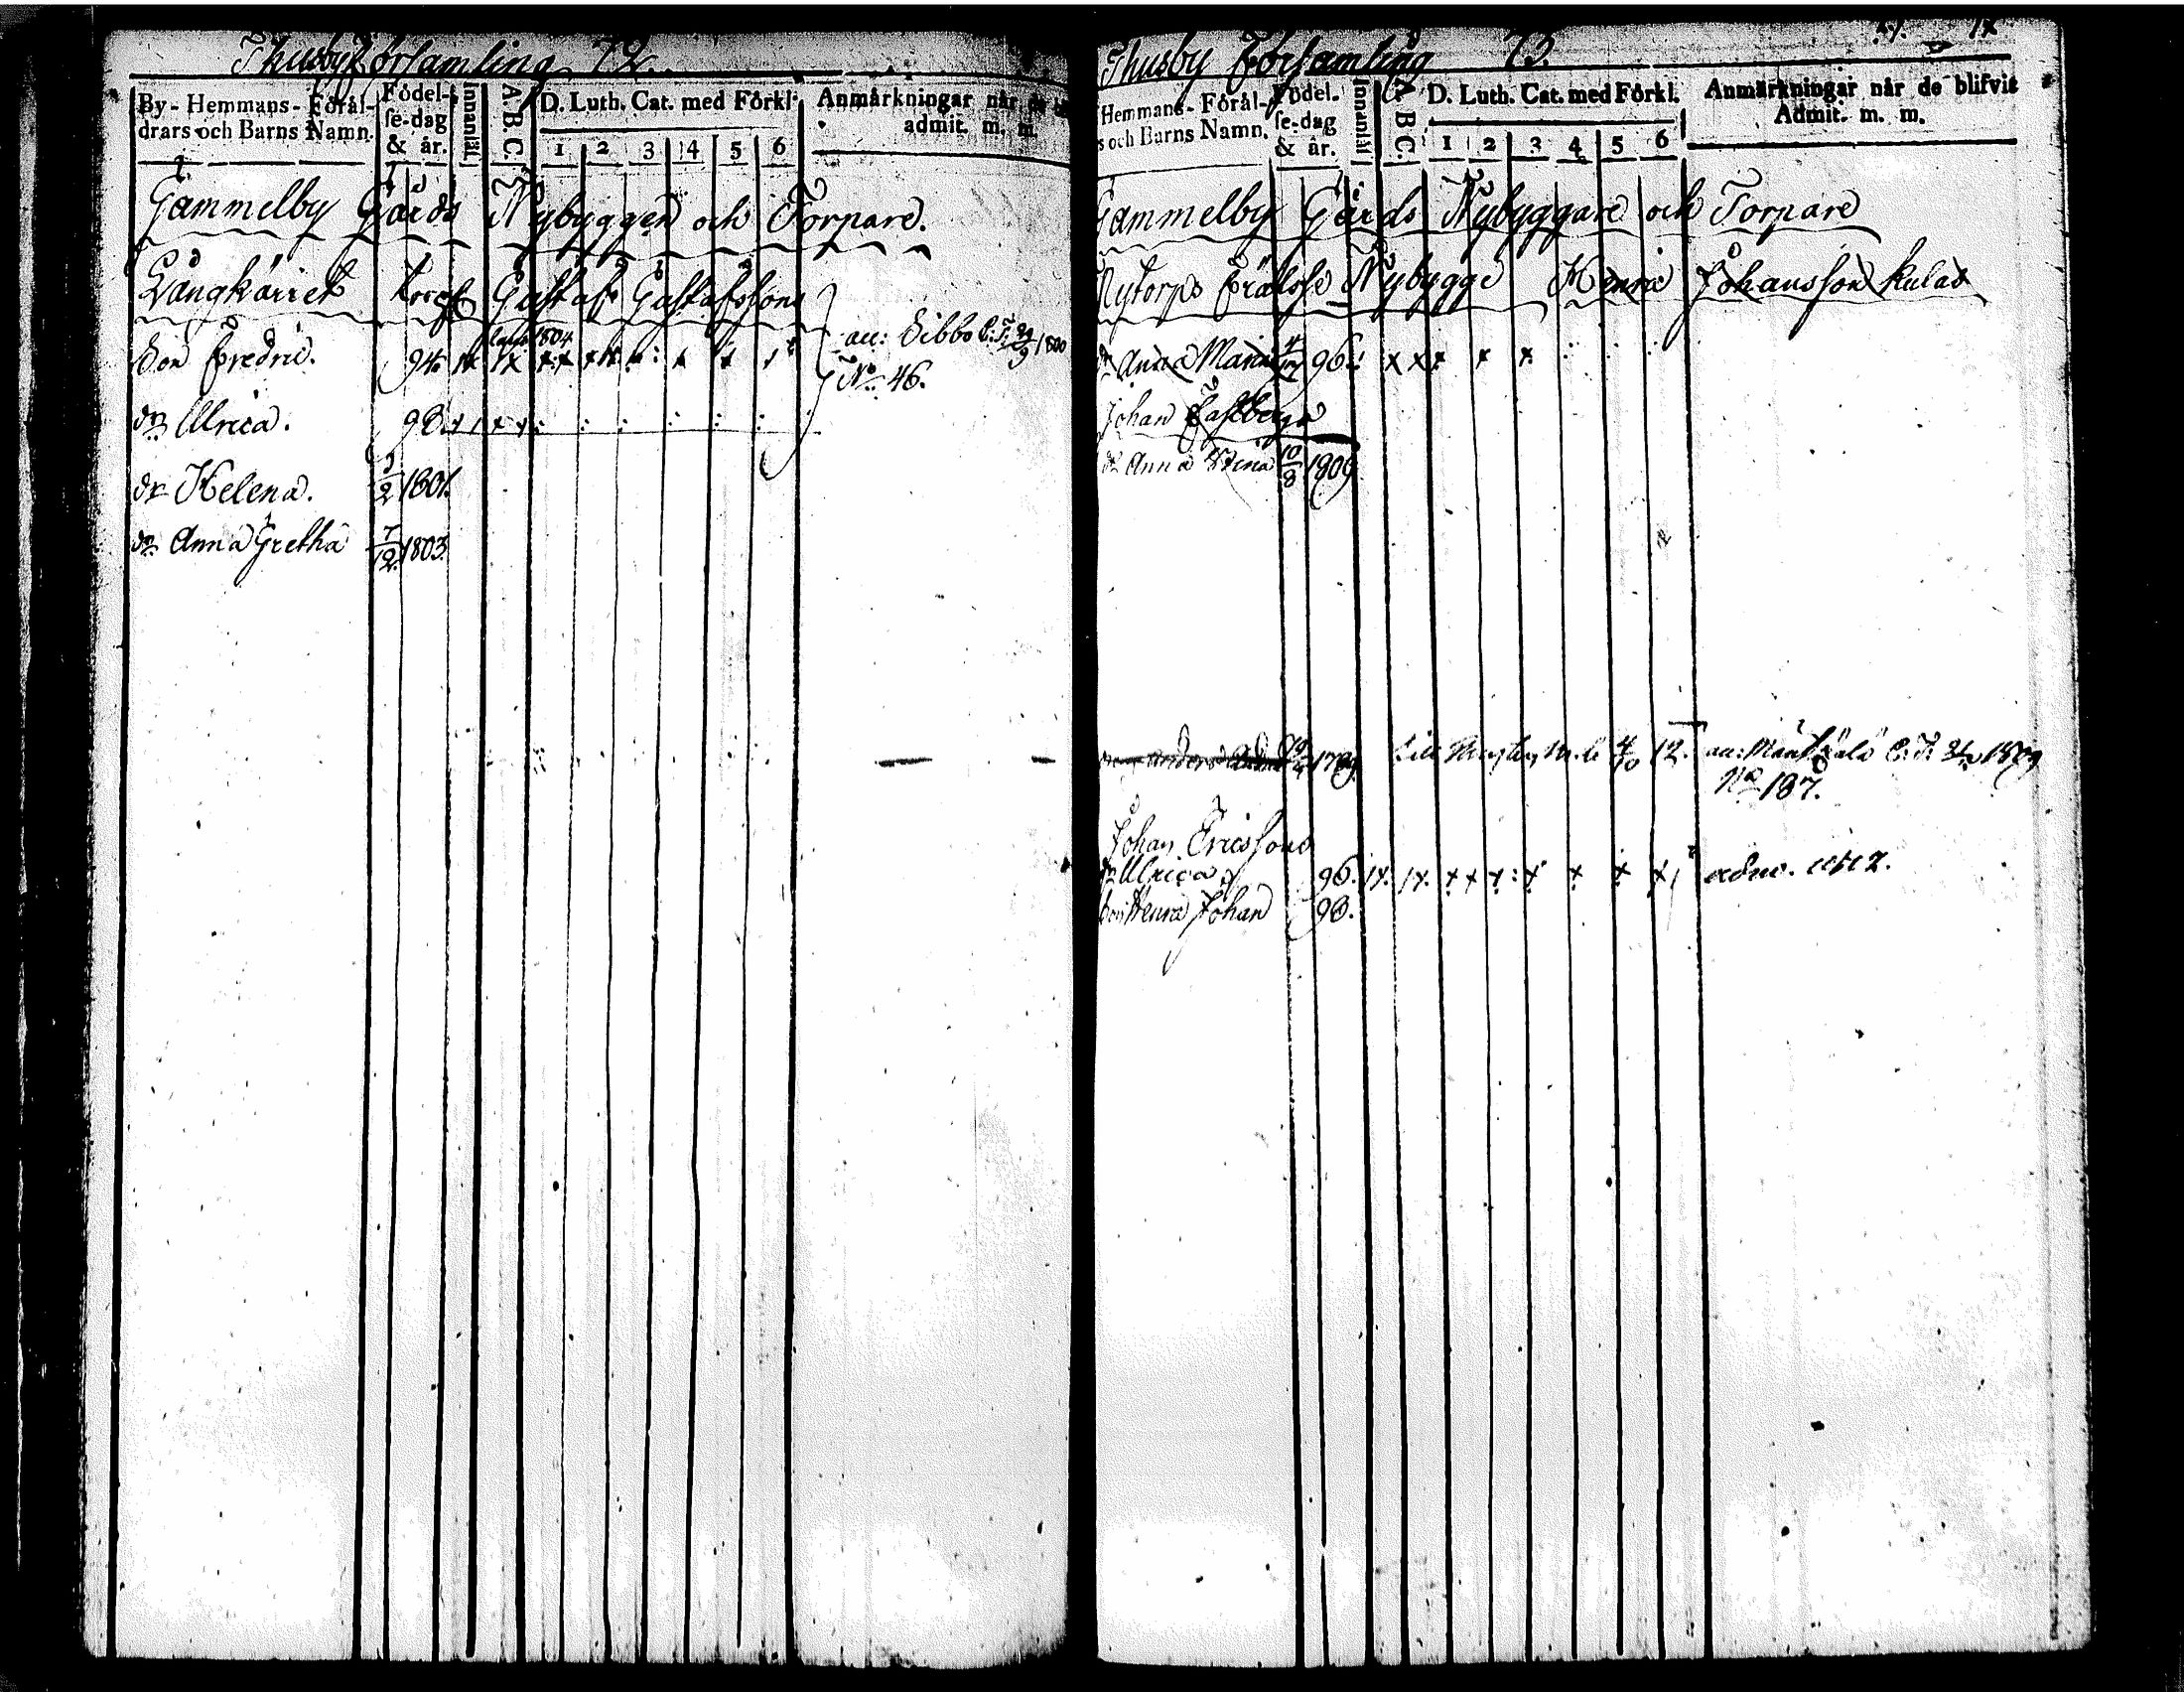 Thusby Församling 72.
By- Hemmans- Förål-
drars och Barns Namn.
Födel-
se-dag
& år.
Innanläs.
A. B. C.
D. Luth. Cat. med Förkl.
1 2 3 4 5 6
Anmärkningar när de
admit. m. m.
Gammelby Gårds Nybyggen och Torpare.
Långkärret Torp Gustaf Gustafssons
1804
Son Fredric. 94. acc: Sibbo 1800
No. 46.
dr Ulrica. 98.
dr Helena. 5/2 1801.
dr Anna Gretha 7/12 1803.
Thusby Församling 73.
Hemmans- Förål-
s och Barns Namn.
Födel.
se-dag
& år.
Innanläs
A. B C.
D. Luth. Cat. med Förkl.
1 2 3 4 5 6
Anmärkningar när de blifvit
Admit. m. m.
Gammelby Gårds Nybyggare och Torpare
Nytorps Frälse Nybygge Henric Johansson Kulas
dr Anna Maria 96.
Johan Fastbergs
dr Anna Stina 10/8 1809
Anders 12. acc:
No 187.
Johan Ericssons
dr Ulrica 96. adm. 1812.
Son Henric Johan 98.